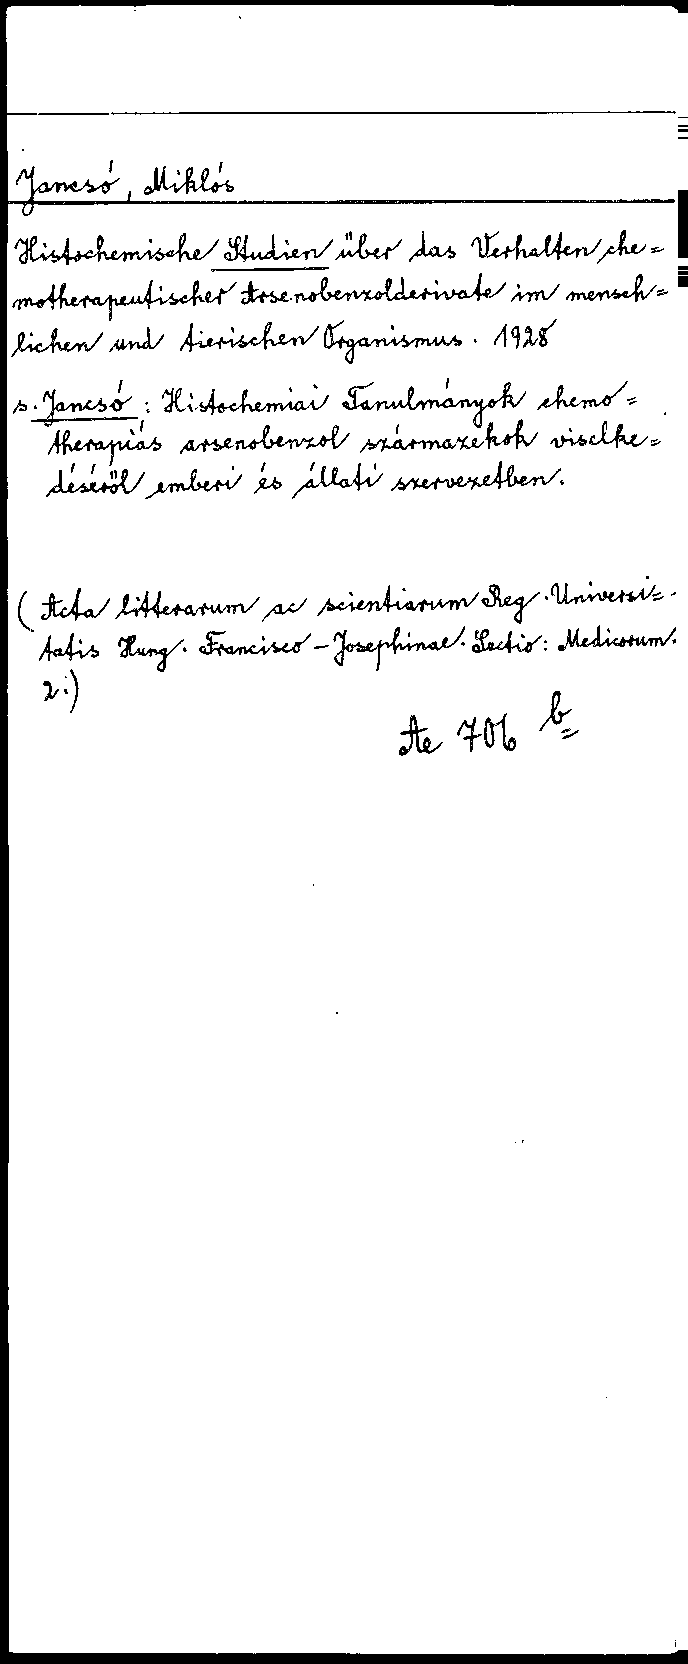 Jancsó, Miklós
Histochemische Studien über das Verhalten che=
motherapeutischer Arsenobenzolderivate im mensch=
lichen und tierischen Organismus. 1928
s. Jancsó: Histochemiai Tanulmányok chemo=
therapiás arsenobenzol származékok viselke=
déséről emberi és állati szervezetben.
(Acta litterarum ac scientiarum Reg. Universi=
tatis Hung. Francisco-Josephinae. Sectio: Medicorum.
2.)
Ae 706 b